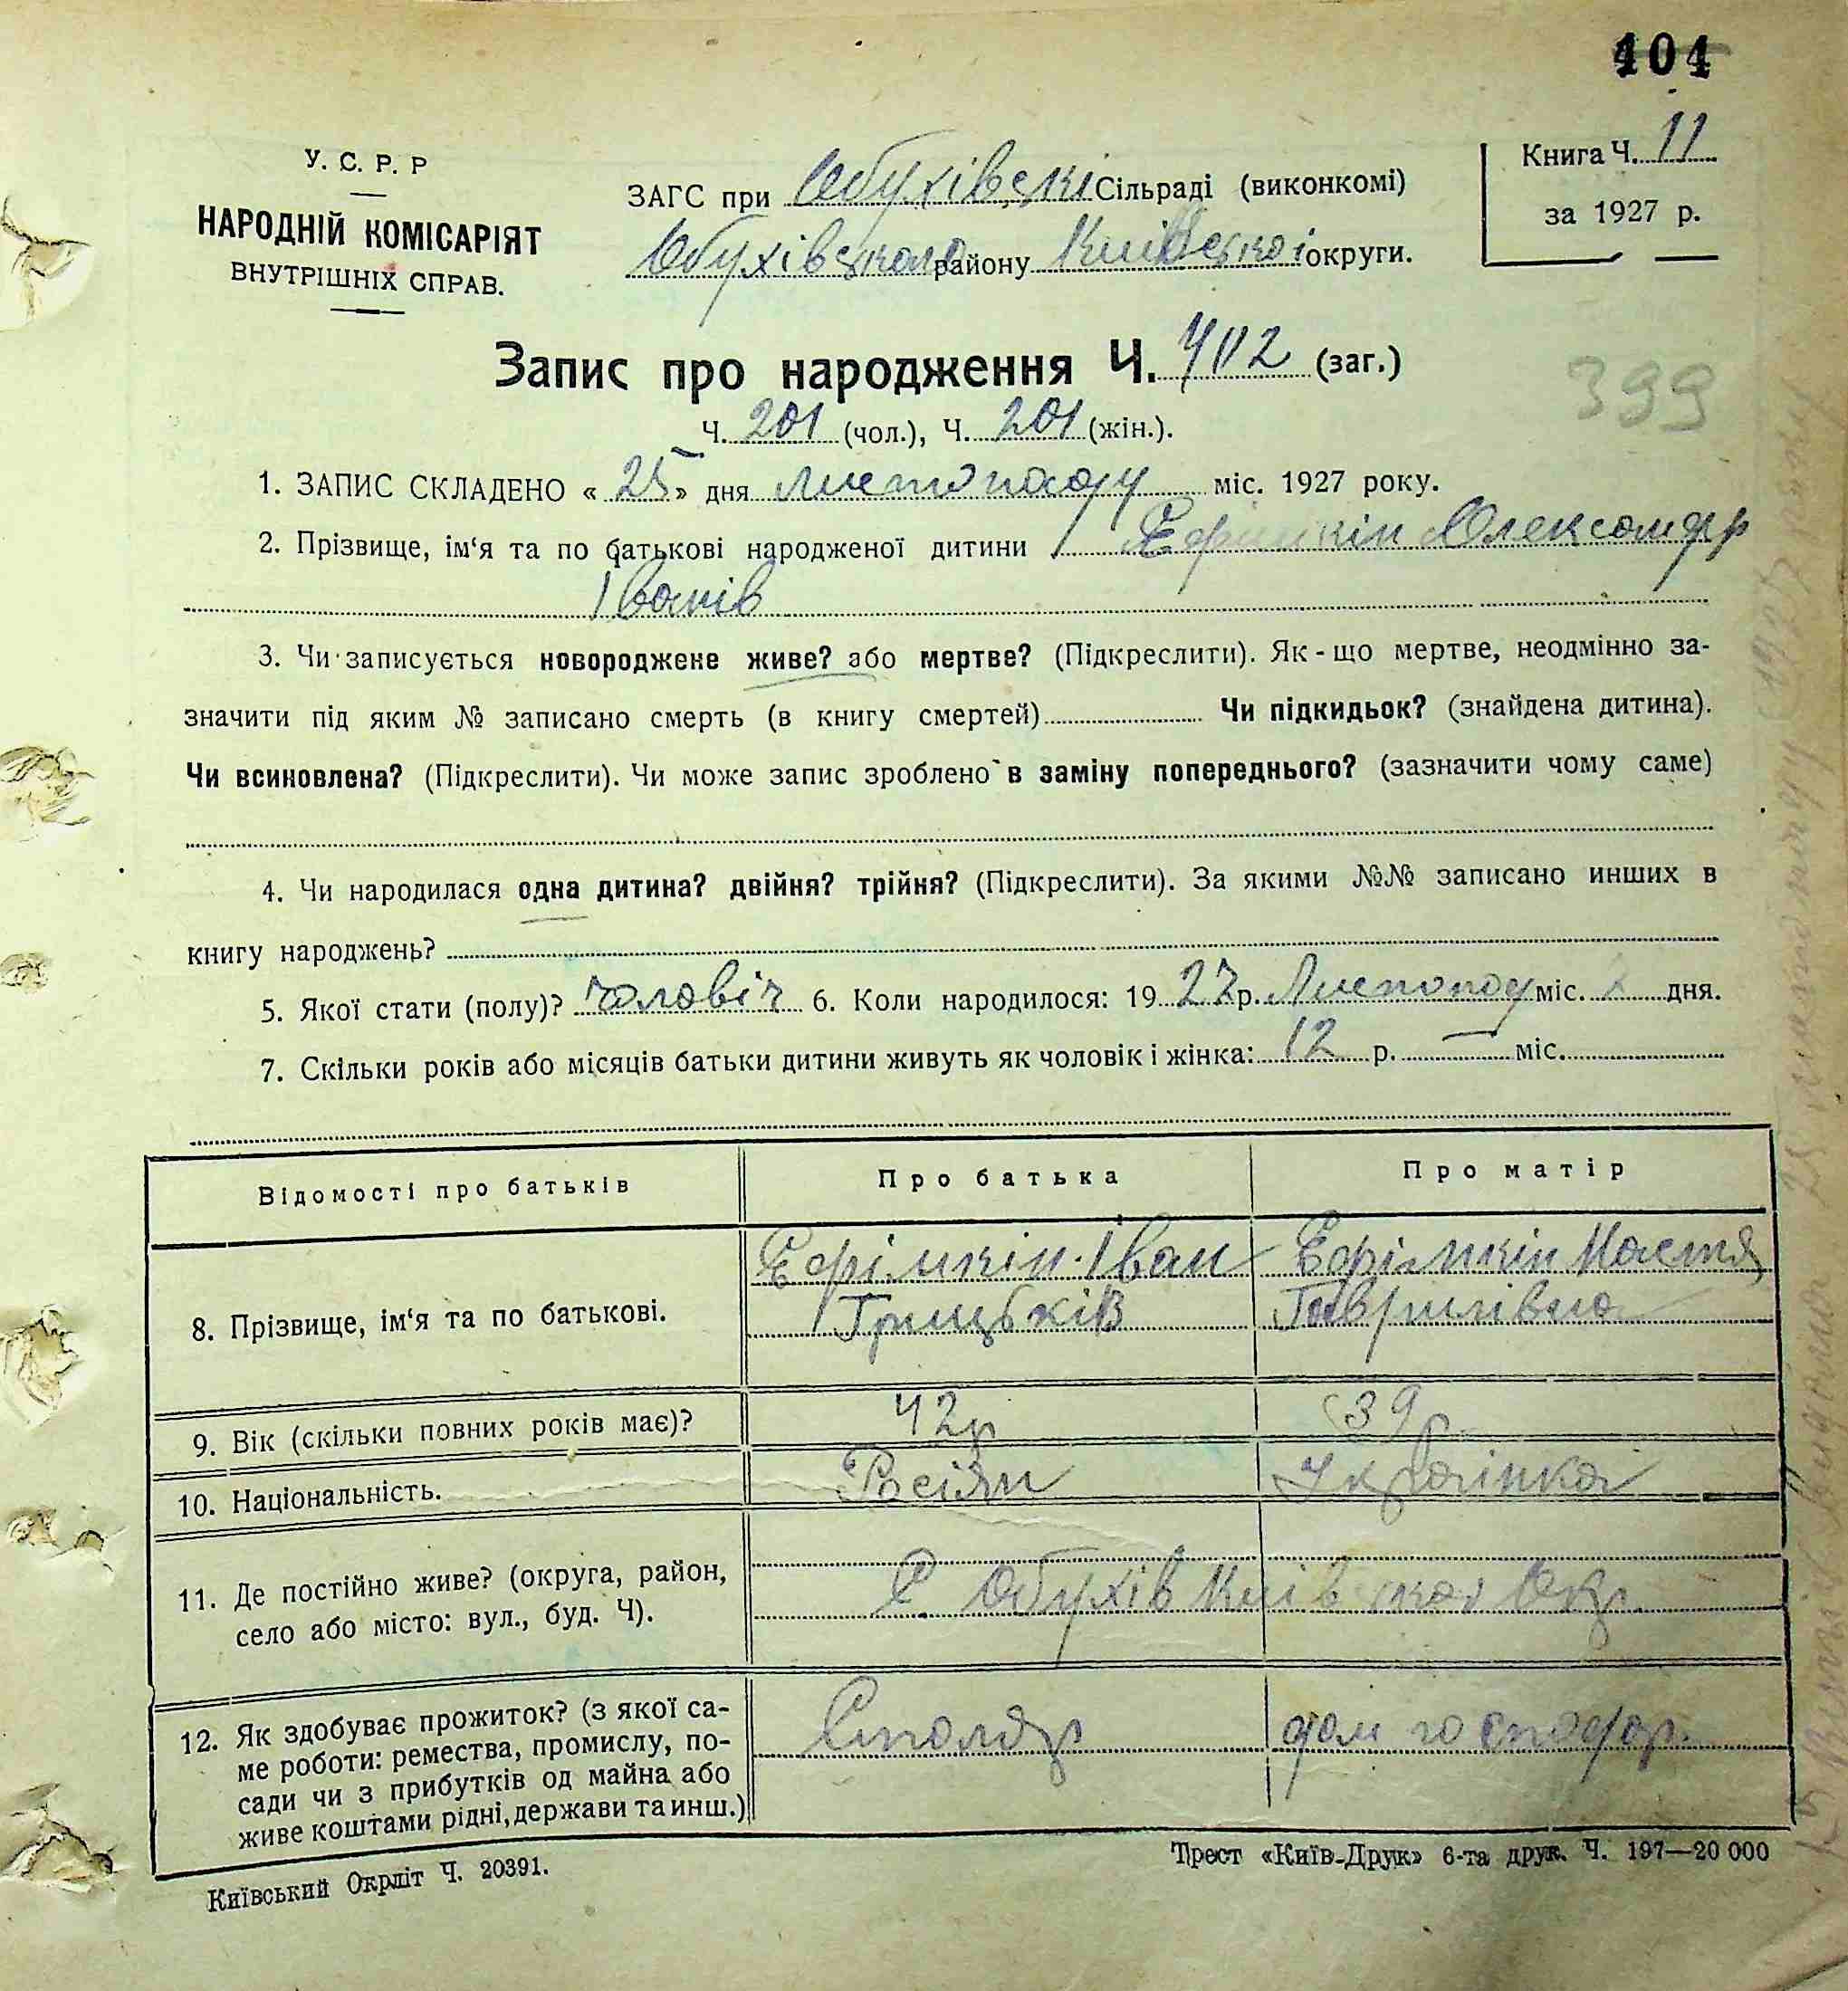 404
У. С. Р. Р
НАРОДНІЙ КОМІСАРІЯТ
ВНУТРІШНІХ СПРАВ.
ЗАГС при Обухівскі Сільраді (виконкомі)
Обухівского району Київської округи.
Книга Ч. 11
за 1927 р.
Запис про народження Ч. 402 (заг.)
399
Ч. 201 (чол.), Ч. 201 (жін.).
1. ЗАПИС СКЛАДЕНО « 25 » дня листопаду міс. 1927 року.
2. Прізвище, ім‘я та по батькові народженої дитини Ефімкін Олександр
Іванів
3. Чи записується новороджене живе? або мертве? (Підкреслити). Як-що мертве, неодмінно за-
значити під яким № записано смерть (в книгу смертей) Чи підкидьок? (знайдена дитина).
Чи всиновлена? (Підкреслити). Чи може запис зроблено в заміну попереднього? (зазначити чому саме)
4. Чи народилася одна дитина? двійня? трійня? (Підкреслити). За якими №№ записано инших в
книгу народжень?
5. Якої стати (полу)? чоловіч 6. Коли народилося: 19 27 р. Листопаду міс. дня.
7. Скільки років або місяців батьки дитини живуть як чоловік і жінка: 12 р. — міс.
Відомості про батьків Про батька Про матір
8. Прізвище, ім‘я та по батькові. Ефімкін Іван Ефімкін Настя
Грицьків Гаврилівна
9. Вік (скільки повних років має)? 42р 39р
10. Національність. Росіян Українка
11. Де постійно живе? (округа, район,
село або місто: вул., буд. Ч). С. Обухів Київської Окр.
12. Як здобуває прожиток? (з якої са-
ме роботи: ремества, промислу, по-
сади чи з прибутків од майна або
живе коштами рідні, держави та инш.) Столяр дом господар.
Київський Окрліт Ч. 20391.
Трест «Київ-Друк» 6-та друк. Ч. 197—20 000